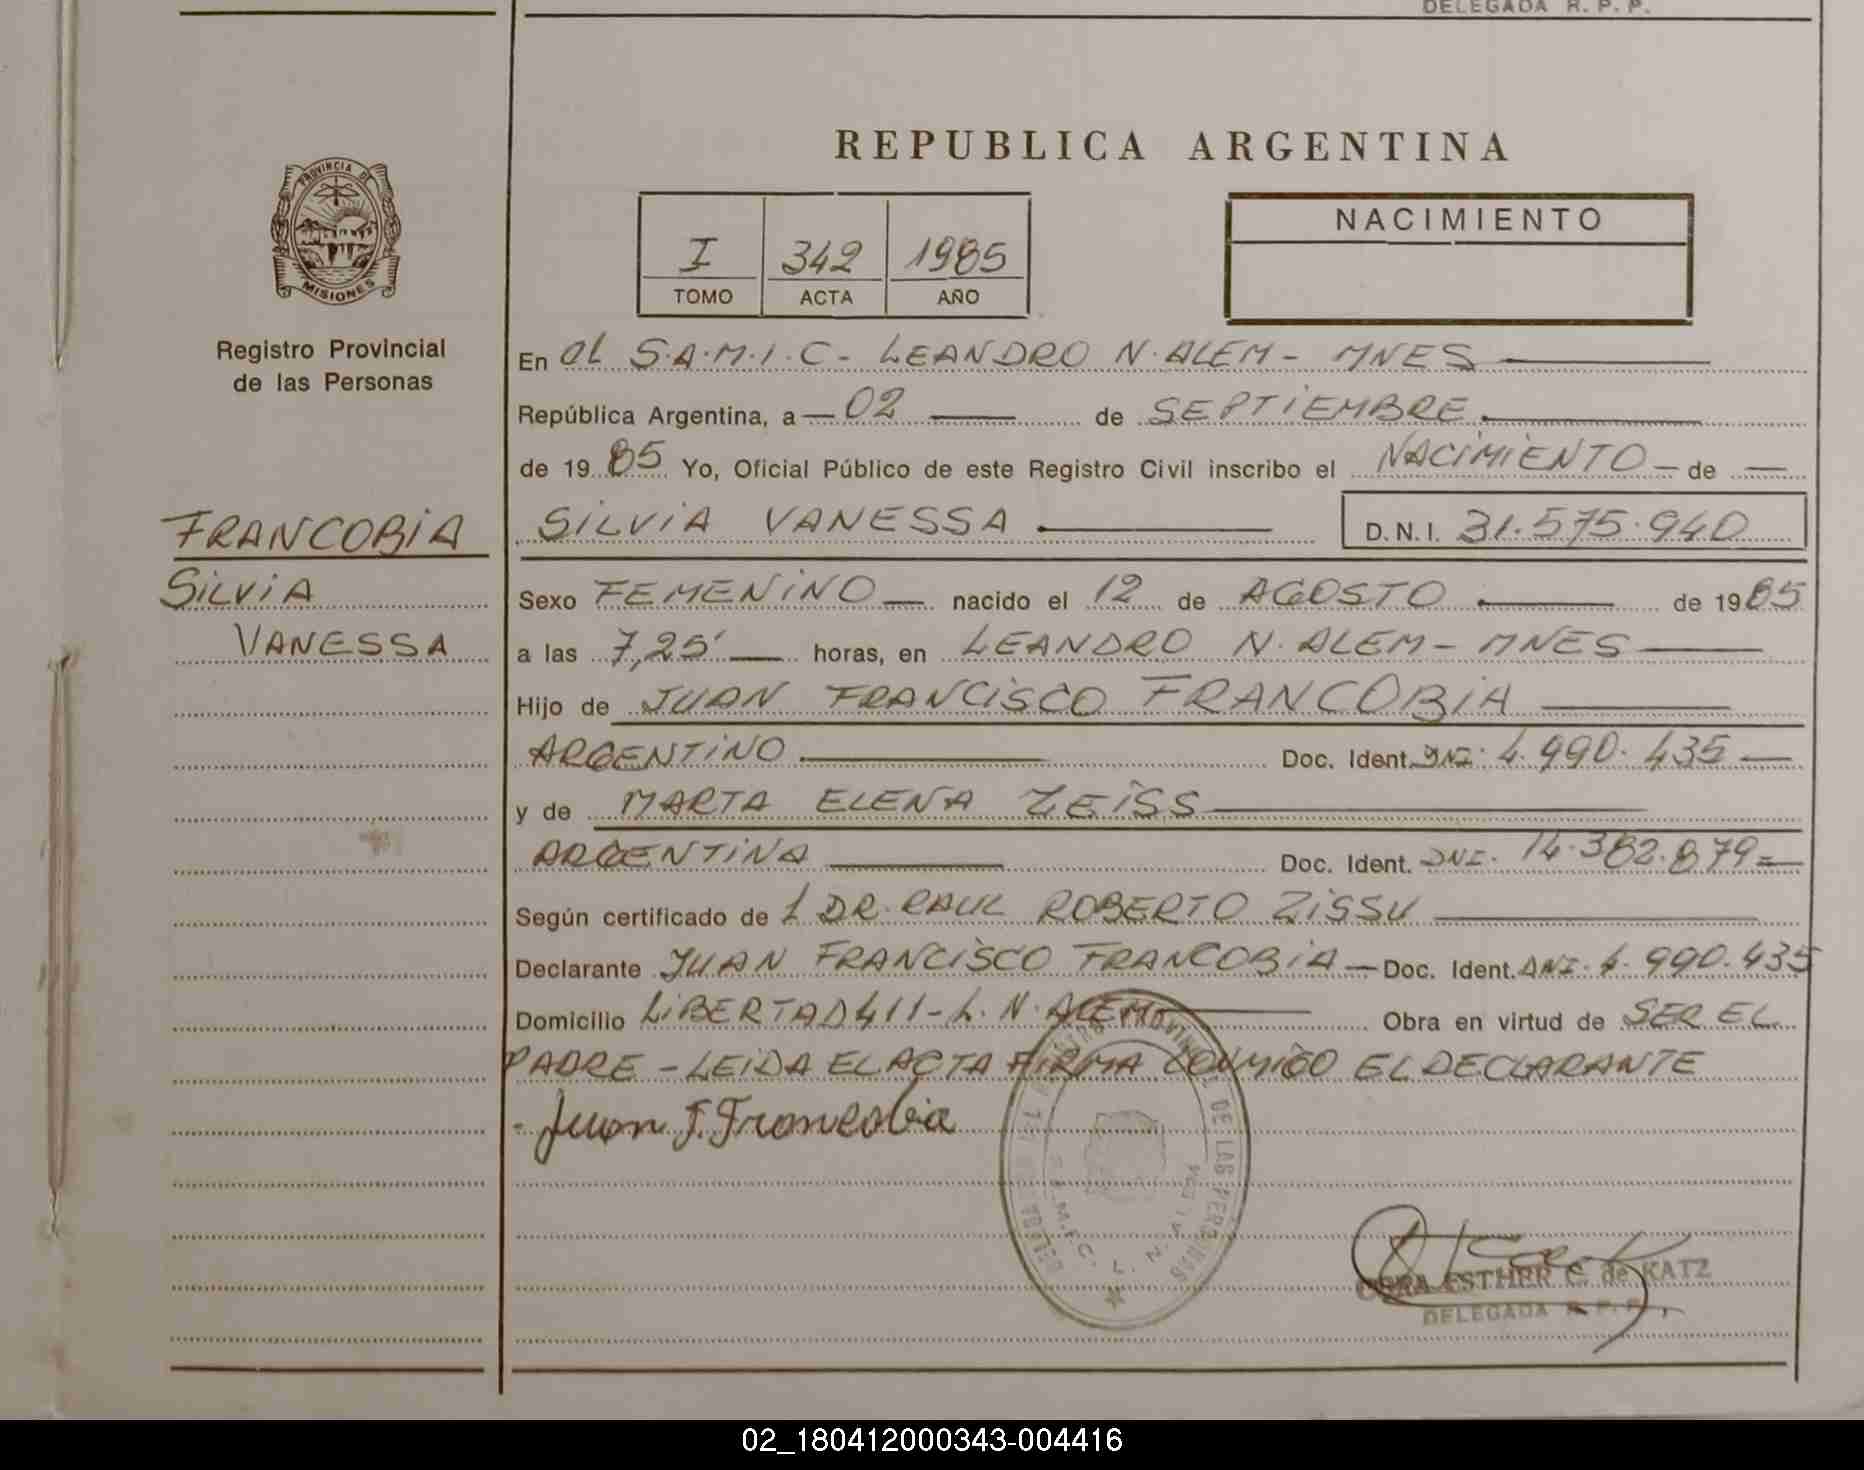 DELEGADA R. P. P.
REPUBLICA ARGENTINA
PROVINCIA DE
MISIONES
Registro Provincial
de las Personas
I 342 1985
TOMO ACTA AÑO
NACIMIENTO
En el S.A.M.I.C- LEANDRO N. ALEM - MNES
República Argentina, a 02 de SEPTIEMBRE
de 1985 Yo, Oficial Público de este Registro Civil inscribo el NACIMIENTO de
FRANCOBIA
SILVIA
VANESSA
SILVIA VANESSA D.N.I. 31.575.940
Sexo FEMENINO nacido el 12 de AGOSTO de 1985
a las 7,25' horas, en LEANDRO N. ALEM - MNES
Hijo de JUAN FRANCISCO FRANCOBIA
ARGENTINO Doc. Ident. DNI. 4.990.435
y de MARTA ELENA ZEISS
ARGENTINA Doc. Ident. DNI. 14.382.879
Según certificado de l DR. RAUL ROBERTO ZISSU
Declarante JUAN FRANCISCO FRANCOBIA - Doc. Ident. DNI. 4.990.435
Domicilio LIBERTAD 411 - L. N. ALEM Obra en virtud de SER EL
PADRE - LEIDA EL ACTA FIRMA CONMIGO EL DECLARANTE
Juan F. Francobia
DE LAS PERSONAS
L. N. ALEM
ESTHER C. de KATZ
DELEGADA R. P. P.
02_180412000343-004416